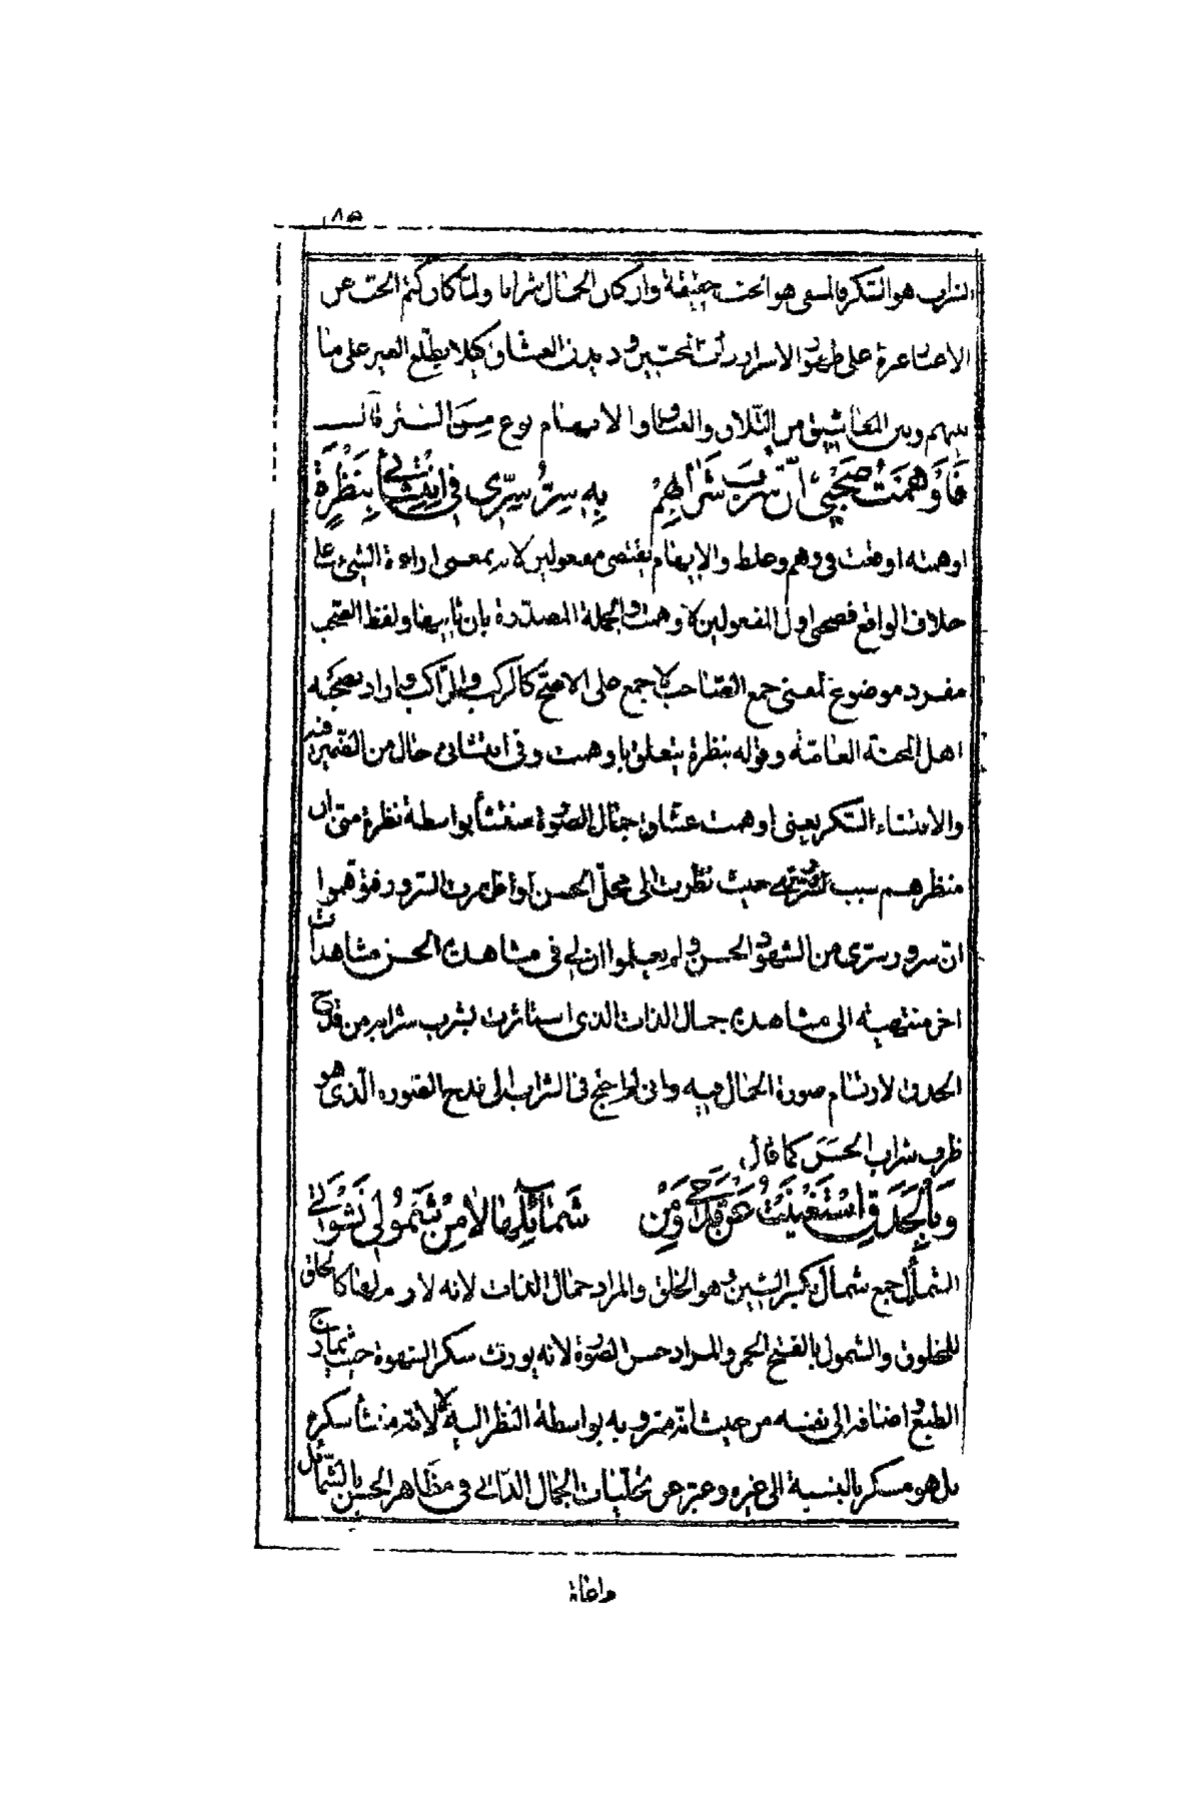 ٨٥
الشراب هو السكر فالمسمى هو الحب حقيقة وان كان الجمال شرابا ولما كان كتم الحب عن
الاغيار غيرة على ظهور الاسرار دأب المحبين وديدن العشاق كيلا يطلع الغير على ما
بينهم وبين المعاشيق من التلاق والعناق والايهام نوع من الستر قال
فَأَوْهَمْتُ صَحْبِي أنّ شُرْبَ شَرَابِهِمْ بِهِ سِرُّ سِرِّي في انْتِشَائي بِنَظْرَةِ
اوهمته اوقعت في وهم وغلط والايهام يقتضى مفعولين لانه بمعنى اراءة الشئ على
خلاف الواقع فصحبى اول المفعولين لاوهمت والجملة المصدرة بان ثانيهما ولفظ الصحب
مفرد موضوع لمعنى جمع الصاحب لا جمع على الاصح كالركب والراكب واراد بصحبه
اهل المحبة العامة وقوله بنظرة يتعلق باوهمت وفى انتشائى حال من الضمير فيه
والانتشاء السكر يعنى اوهمت عشاق جمال الصورة بواسطة نظرة منى ان
منظرهم سبب حيث نظرت الى محل الحسن واظهرت السرور فتوهموا
ان سرور سرى من الشهود الحسن ولم يعلموا ان لى فى مشاهدة الحسن مشاهدات
اخر منتهية الى مشاهدة جمال الذات الذى استاثرت بشرب شرابه من قدح
الحدق لارتسام صورة الجمال فيه وانى لم احتج فى الشراب الى قدح الصورة الذى هو
ظرف شراب الحسن كما قال
وَبِالْحَدَقِ اسْتَغْنَيْتُ عَنْ قَدَحِي وَمِنْ شَمَائِلِهَا لا مِنْ شَمُولِي نَشْوَتي
الشمائل جمع شمال بكسر الشين وهو الخلق والمراد جمال الذات لانه لازم لها كالخلق
للمخلوق والشمول بالفتح الخمر والمراد حسن الصورة لانه يورث سكر الشهوة حيث يمازج
الطبع واضافه الى نفسه من حيث انه متروبه بواسطة النظر اليه لا لانه منشأ سكره
بل هو مسكر بالنسبة الى غيره وعبر عن تجليات الجمال الذاتي فى مظاهر الحسن بالشمائل